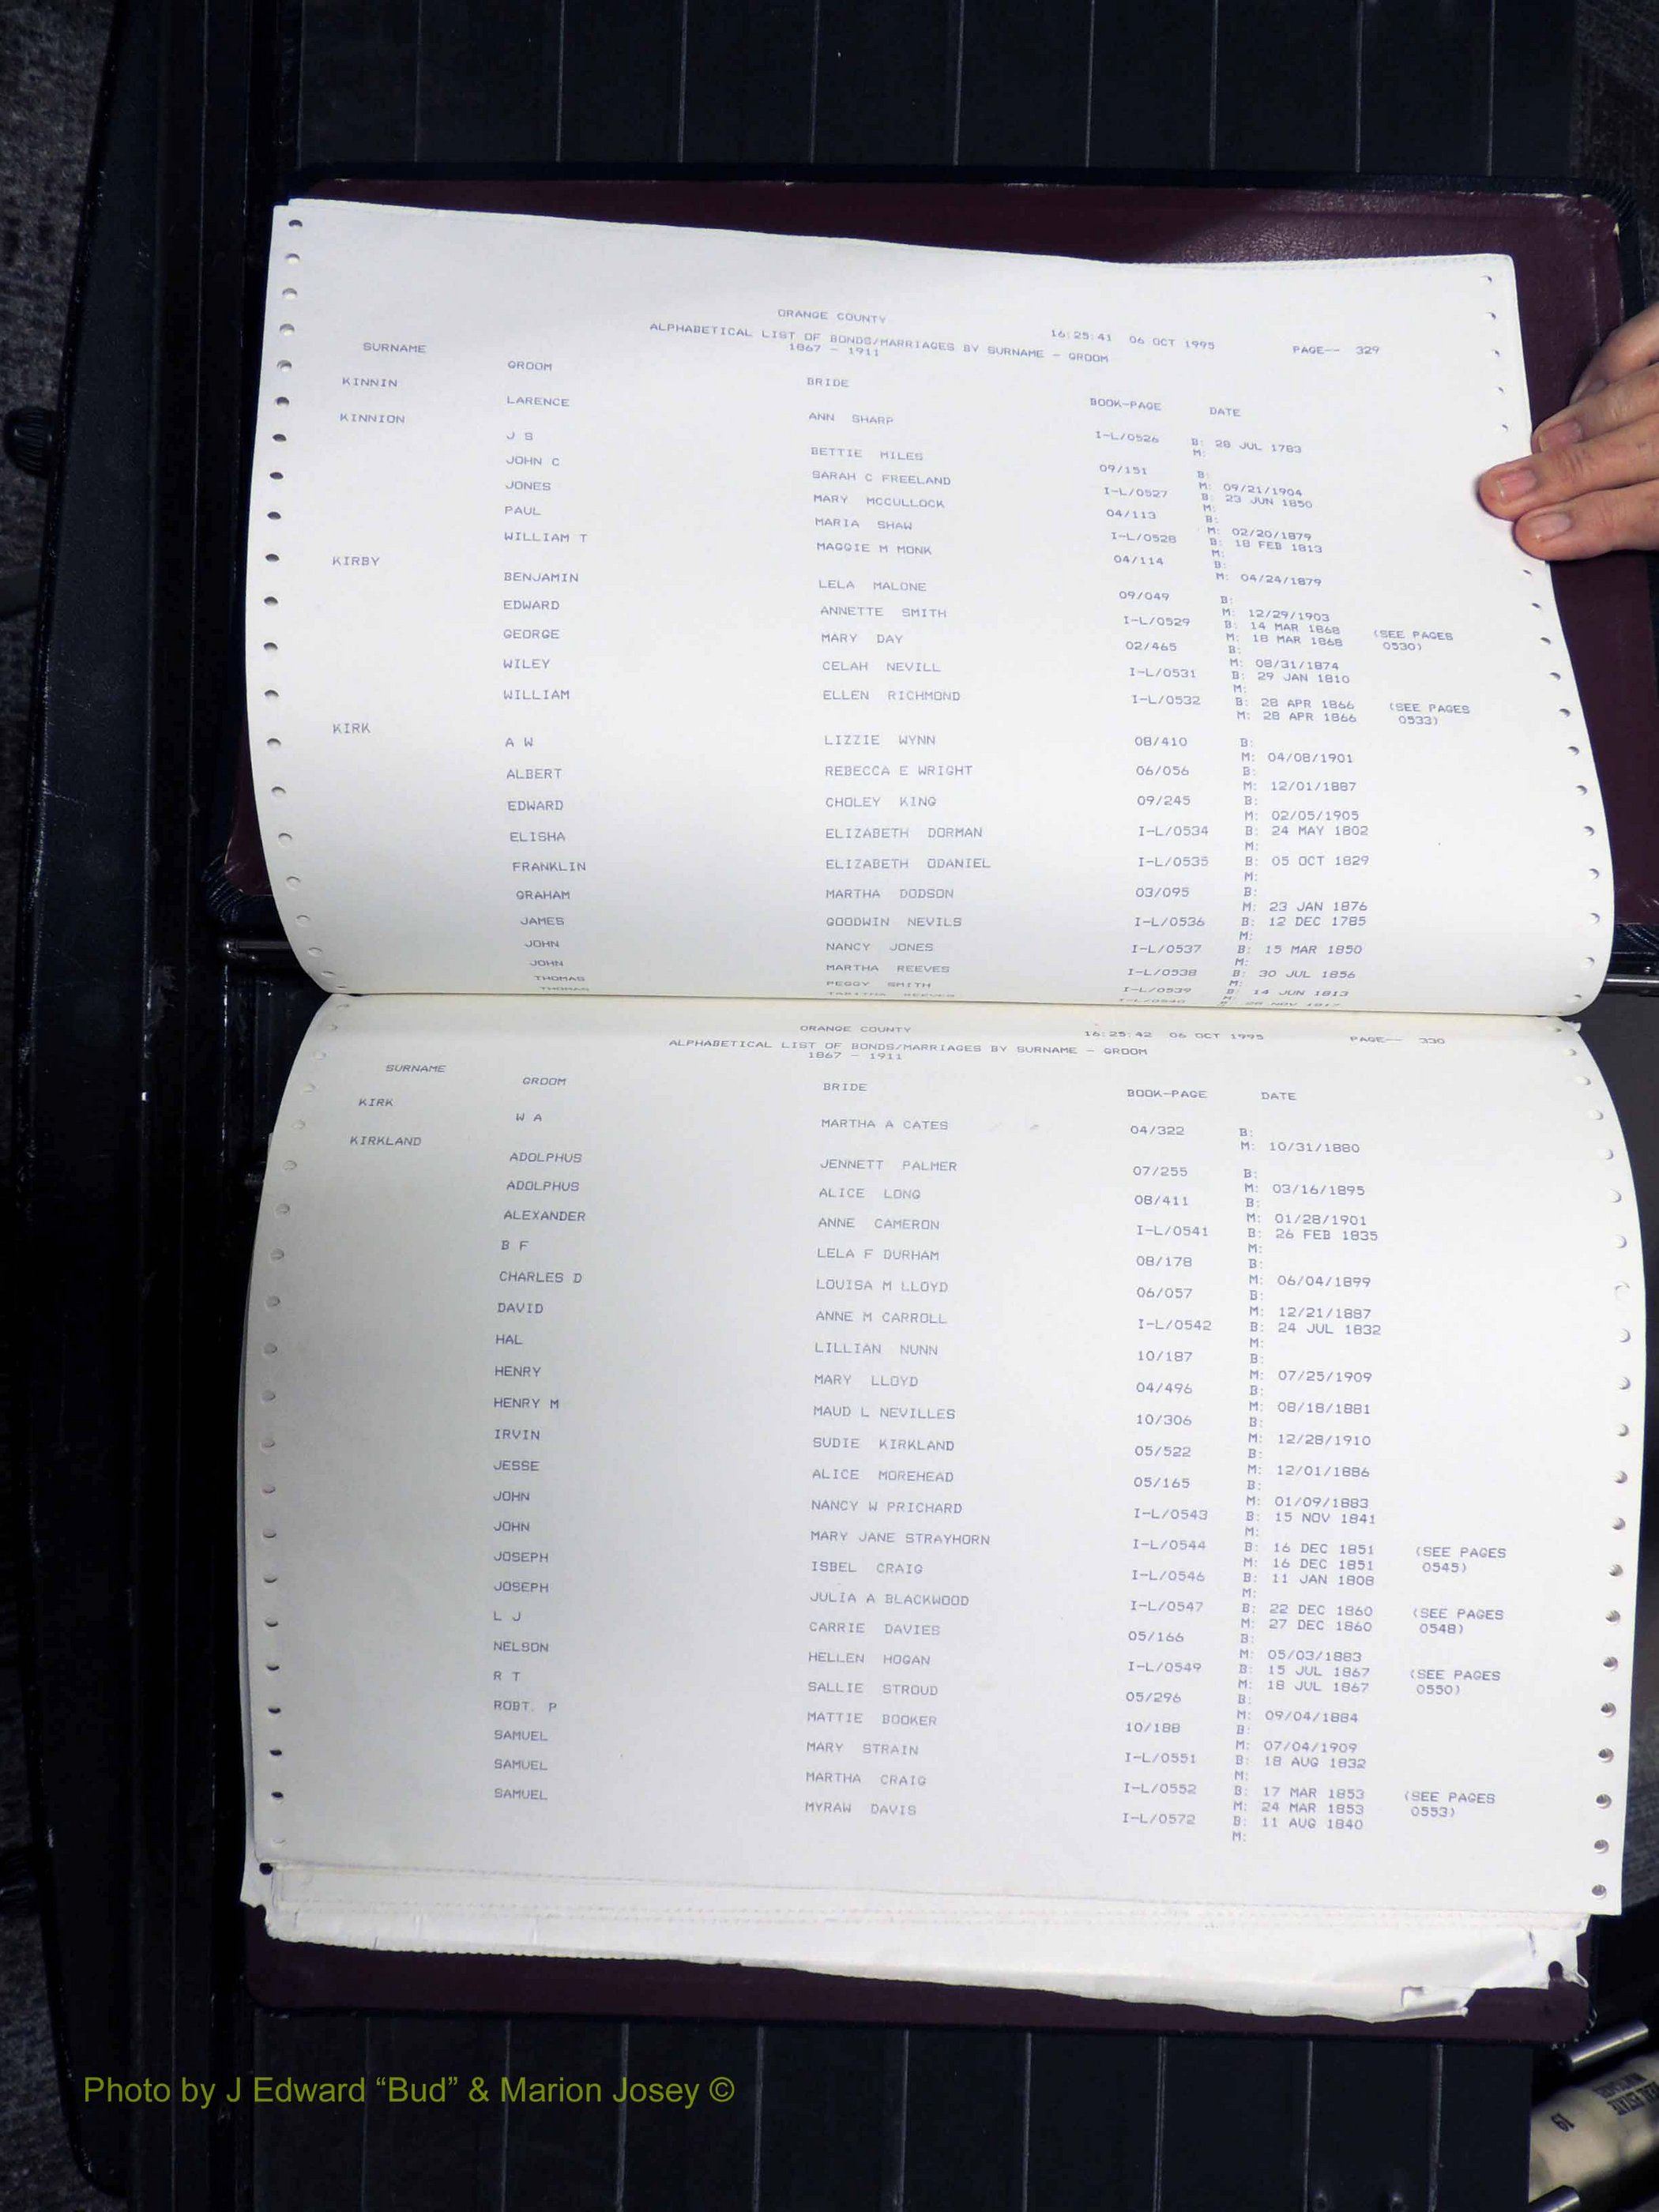 ORANGE COUNTY 16:25:41 06 OCT 1995 PAGE-- 329
ALPHABETICAL LIST OF BONDS/MARRIAGES BY SURNAME - GROOM
1867 - 1911
SURNAME GROOM BRIDE BOOK-PAGE DATE
KINNIN
LARENCE ANN SHARP I-L/0526 B: 28 JUL 1783
M:
KINNION
J S BETTIE MILES 09/151 B:
M: 09/21/1904
JOHN C SARAH C FREELAND I-L/0527 B: 23 JUN 1850
M:
JONES MARY MCCULLOCK 04/113 B:
M: 02/20/1879
PAUL MARIA SHAW I-L/0528 B: 18 FEB 1813
M:
WILLIAM T MAGGIE M MONK 04/114 B:
M: 04/24/1879
KIRBY
BENJAMIN LELA MALONE 09/049 B:
M: 12/29/1903
EDWARD ANNETTE SMITH I-L/0529 B: 14 MAR 1868 (SEE PAGES
M: 18 MAR 1868 0530)
GEORGE MARY DAY 02/465 B:
M: 08/31/1874
WILEY CELAH NEVILL I-L/0531 B: 29 JAN 1810
M:
WILLIAM ELLEN RICHMOND I-L/0532 B: 28 APR 1866 (SEE PAGES
M: 28 APR 1866 0533)
KIRK
A W LIZZIE WYNN 08/410 B:
M: 04/08/1901
ALBERT REBECCA E WRIGHT 06/056 B:
M: 12/01/1887
EDWARD CHOLEY KING 09/245 B:
M: 02/05/1905
ELISHA ELIZABETH DORMAN I-L/0534 B: 24 MAY 1802
M:
FRANKLIN ELIZABETH ODANIEL I-L/0535 B: 05 OCT 1829
M:
GRAHAM MARTHA DODSON 03/095 B:
M: 23 JAN 1876
JAMES GOODWIN NEVILS I-L/0536 B: 12 DEC 1785
M:
JOHN NANCY JONES I-L/0537 B: 15 MAR 1850
M:
JOHN MARTHA REEVES I-L/0538 B: 30 JUL 1856
M:
THOMAS PEGGY SMITH I-L/0539 B: 14 JUN 1813
M:
THOMAS TABITHA REEVES I-L/0540
ORANGE COUNTY 16:25:42 06 OCT 1995 PAGE-- 330
ALPHABETICAL LIST OF BONDS/MARRIAGES BY SURNAME - GROOM
1867 - 1911
SURNAME GROOM BRIDE BOOK-PAGE DATE
KIRK
W A MARTHA A CATES 04/322 B:
M: 10/31/1880
KIRKLAND
ADOLPHUS JENNETT PALMER 07/255 B:
M: 03/16/1895
ADOLPHUS ALICE LONG 08/411 B:
M: 01/28/1901
ALEXANDER ANNE CAMERON I-L/0541 B: 26 FEB 1835
M:
B F LELA F DURHAM 08/178 B:
M: 06/04/1899
CHARLES D LOUISA M LLOYD 06/057 B:
M: 12/21/1887
DAVID ANNE M CARROLL I-L/0542 B: 24 JUL 1832
M:
HAL LILLIAN NUNN 10/187 B:
M: 07/25/1909
HENRY MARY LLOYD 04/496 B:
M: 08/18/1881
HENRY M MAUD L NEVILLES 10/306 B:
M: 12/28/1910
IRVIN SUDIE KIRKLAND 05/522 B:
M: 12/01/1886
JESSE ALICE MOREHEAD 05/165 B:
M: 01/09/1883
JOHN NANCY W PRICHARD I-L/0543 B: 15 NOV 1841
M:
JOHN MARY JANE STRAYHORN I-L/0544 B: 16 DEC 1851 (SEE PAGES
M: 16 DEC 1851 0545)
JOSEPH ISBEL CRAIG I-L/0546 B: 11 JAN 1808
M:
JOSEPH JULIA A BLACKWOOD I-L/0547 B: 22 DEC 1860 (SEE PAGES
M: 27 DEC 1860 0548)
L J CARRIE DAVIES 05/166 B:
M: 05/03/1883
NELSON HELLEN HOGAN I-L/0549 B: 15 JUL 1867 (SEE PAGES
M: 18 JUL 1867 0550)
R T SALLIE STROUD 05/296 B:
M: 09/04/1884
ROBT. P MATTIE BOOKER 10/188 B:
M: 07/04/1909
SAMUEL MARY STRAIN I-L/0551 B: 18 AUG 1832
M:
SAMUEL MARTHA CRAIG I-L/0552 B: 17 MAR 1853 (SEE PAGES
M: 24 MAR 1853 0553)
SAMUEL MYRAW DAVIS I-L/0572 B: 11 AUG 1840
M:
Photo by J Edward “Bud” & Marion Josey ©
19